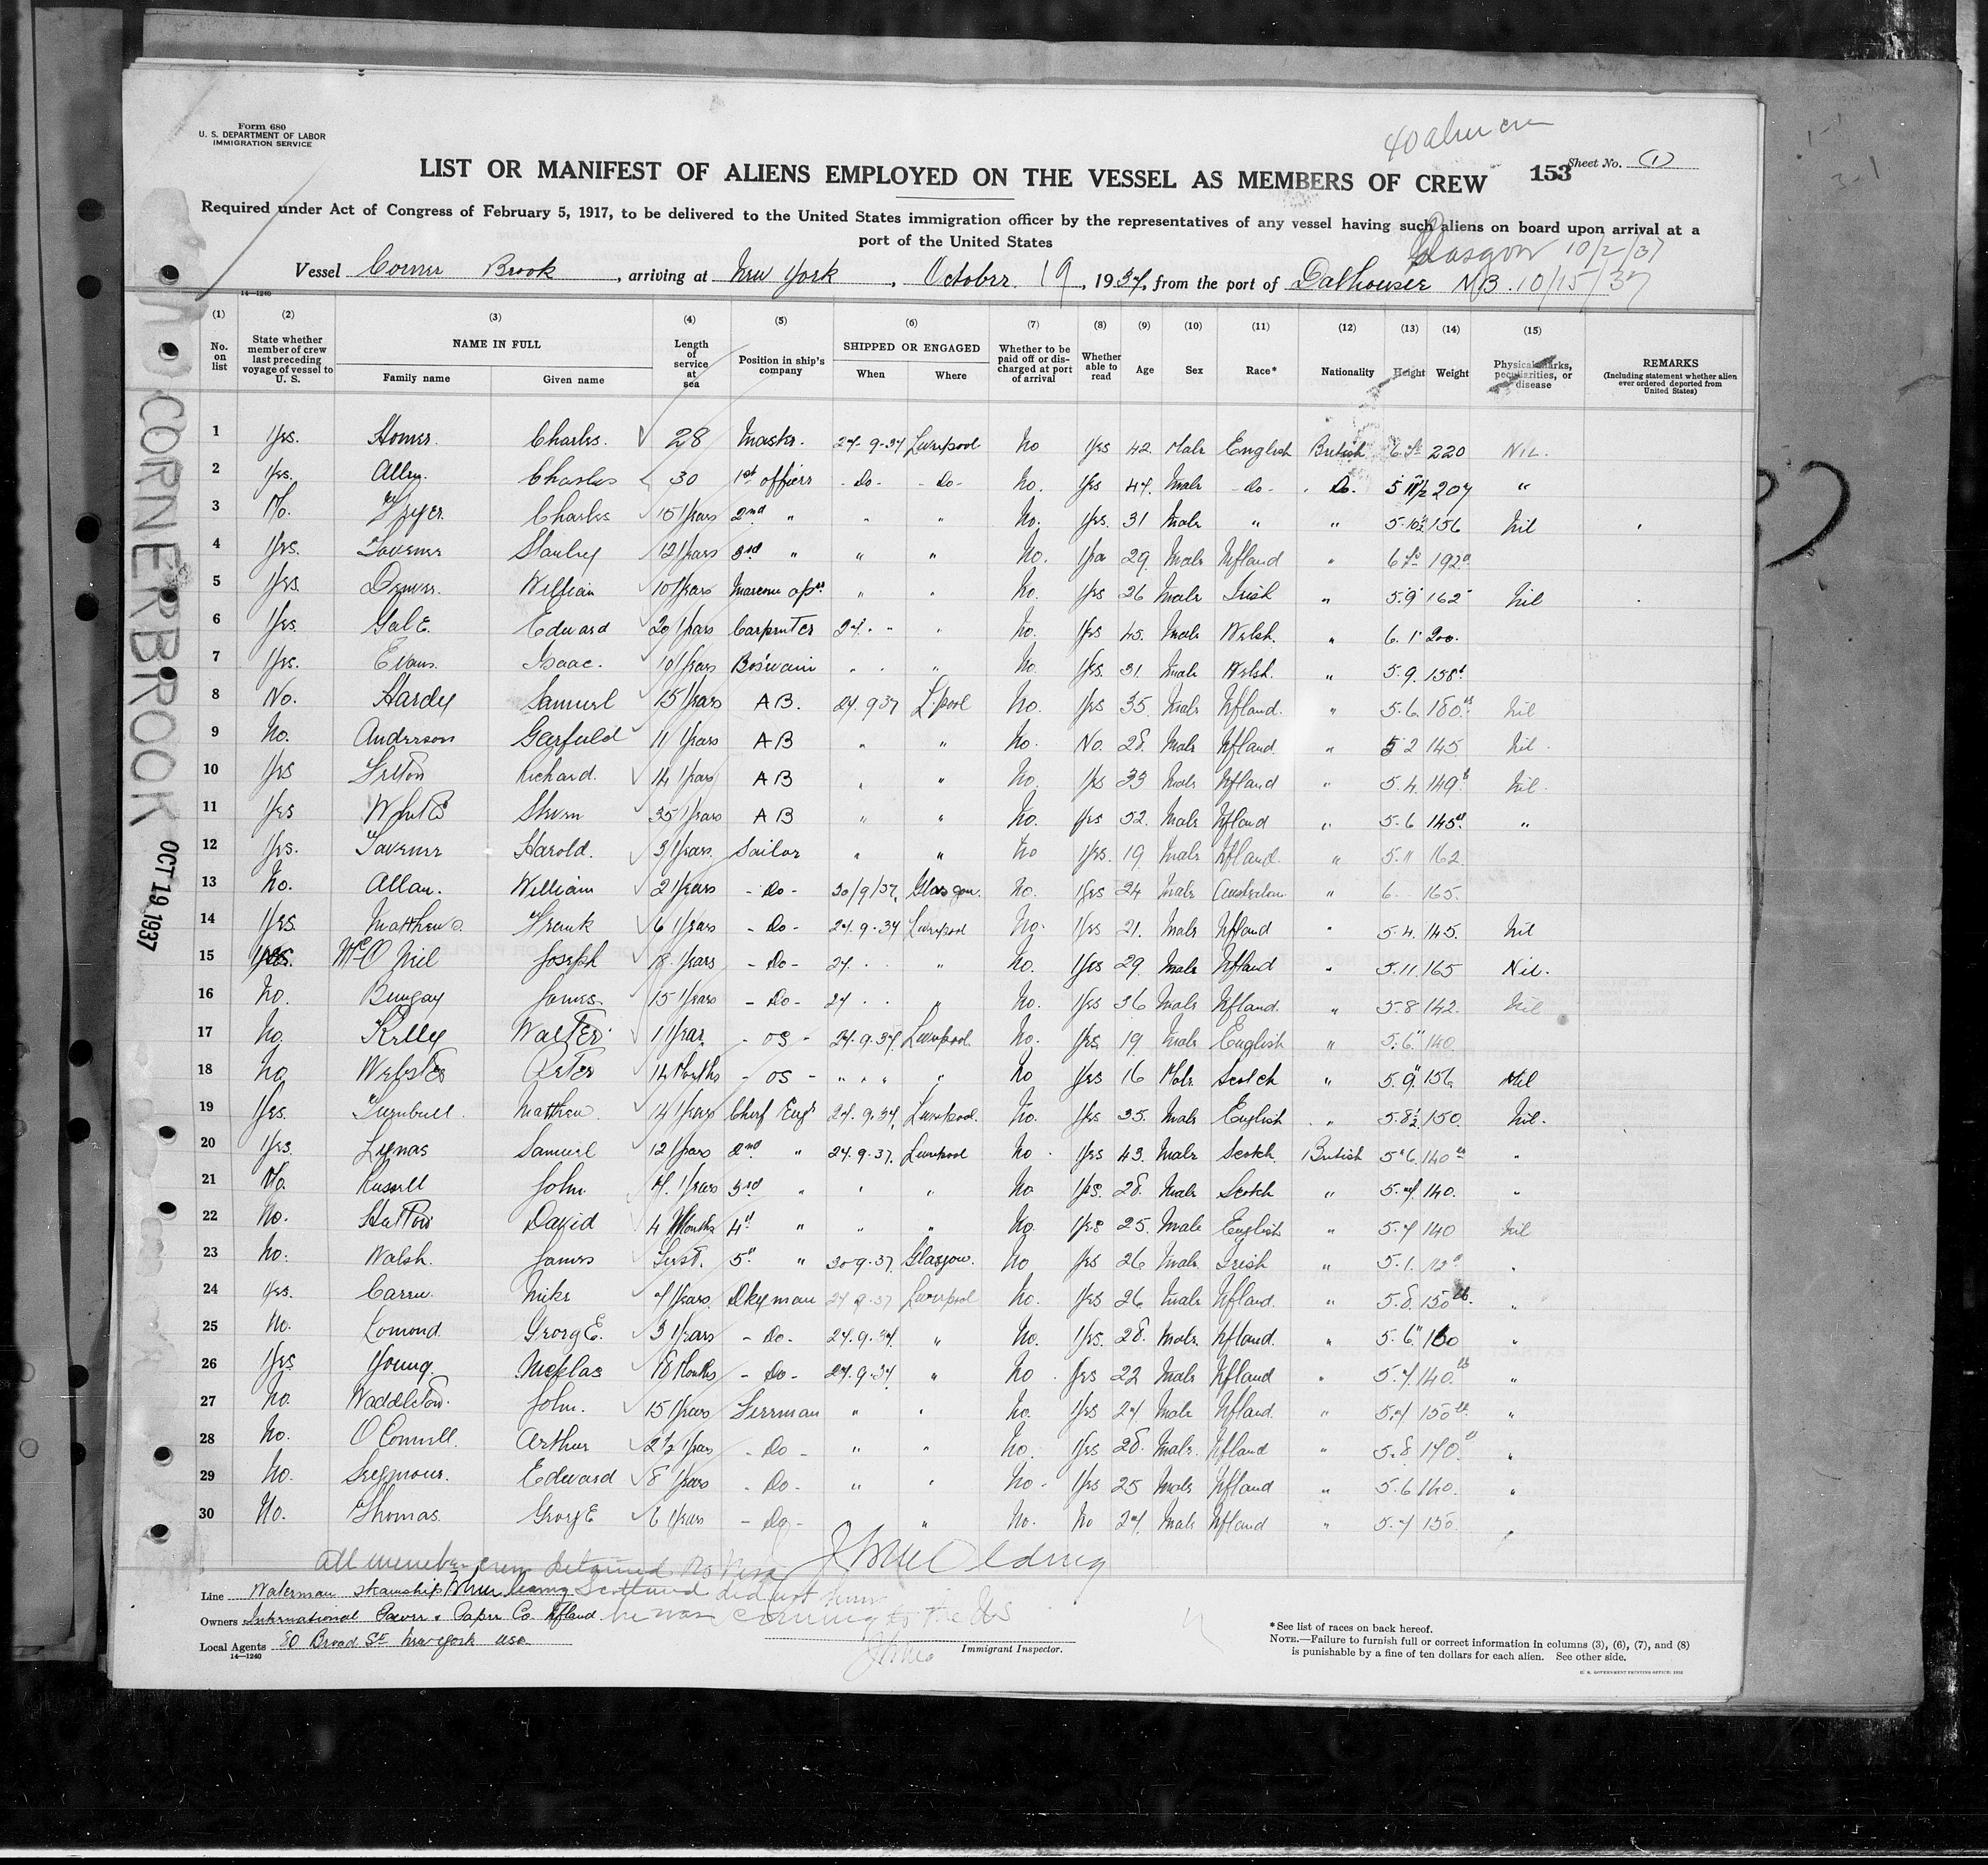 Form 680
U. S. DEPARTMENT OF LABOR
IMMIGRATION SERVICE
40 alien
LIST OR MANIFEST OF ALIENS EMPLOYED ON THE VESSEL AS MEMBERS OF CREW
153 Sheet No. (1)
Required under Act of Congress of February 5, 1917, to be delivered to the United States immigration officer by the representatives of any vessel having such aliens on board upon arrival at a
port of the United States
Glasgow 10/2/37
Vessel Corner Brook, arriving at New York, October 19, 1937, from the port of Dalhousie NB. 10/15/37
14—1240
(1) (2) (3) (4) (5) (6) (7) (8) (9) (10) (11) (12) (13) (14) (15)
No. on list State whether member of crew last preceding voyage of vessel to U. S. NAME IN FULL Family name Given name Length of service at sea Position in ship's company SHIPPED OR ENGAGED When Where Whether to be paid off or discharged at port of arrival Whether able to read Age Sex Race* Nationality Height Weight Physical marks, peculiarities, or disease REMARKS (Including statement whether alien ever ordered deported from United States)
1 Yes. Homer. Charles. 28 Master. 24-9-37 Liverpool No Yes 42. Male English British 6 ft 220 Nil.
2 Yes. Allen. Charles 30 1st officer - Do - - Do - No. Yes 47. Male - Do - Do. 5 11½ 207 "
3 No. Charles 15 Years 2nd " " " No. Yes. 31 Male " " 5.10½ 156 Nil
4 Yes. Taverner Stanley 12 Years 3rd " " " No. 29. Male Nfland " 6 ft 192
5 Yes. William 10 Years Marconi " " No. Yes 26 Male Irish " 5.9 162 Nil
6 Yes. Gale. Edward 20 Years Carpenter 24. " " No. Yes 45. Male Welsh. " 6.1 200.
7 Yes. Evans. Isaac. 10 Years Boswain " " No. Yes. 31. Male Welsh. " 5.9. 158
8 No. Hardy Samuel 15 Years A B. 24.9.37 L.pool No. Yes 35. Male Nfland. " 5.6. 180 Nil
9 No. Anderson Garfield 11 Years A B " " No. No. 28. Male Nfland " 5 2 145 Nil.
10 Yes Richard. 14 Years A B " " No. Yes 33 Male Nfland " 5.4. 149 Nil.
11 Yes White 35 Years A B " " No. Yes 52. Male Nfland " 5.6 145 "
12 Yes. Taverner Harold. 3 Years. Sailor " " No Yes. 19 Male Nfland. " 5.11 162
13 No. Allan. William 2 Years - Do - 30/9/37. Glasgow. No. Yes 24 Male Australian " 6. 165.
14 Yes. Matthews. Frank 6 Years - Do - 24.9.37 Liverpool No. Yes 21. Male Nfland " 5.4. 145. Nil
15 Joseph 18 Years - Do - 24. " " No. Yes 29. Male Nfland " 5.11. 165 Nil.
16 No. Bungay James. 15 Years - Do - 24 " " No. Yes 36 Male Nfland. " 5.8 142. Nil
17 No. Kelly Walter 1 Year. - OS - 24.9.37. Liverpool No. Yes 19. Male English " 5.6. 140
18 No Webster Peter 14 Months - OS - " " No Yes 16 Male Scotch " 5.9. 156 Nil
19 Yes. Turnbull. Matthew. 14 Years Chief Engr 24.9.37. Liverpool. No. Yes 35. Male English " 5.8½. 150. Nil.
20 Yes. Lynas Samuel 12 Years 2nd " 24.9.37. Liverpool No. Yes 43. Male Scotch. British 5.6. 140 "
21 No. Russell John. 7. Years 3rd " " " No Yes. 28. Male Scotch " 5.7. 140. "
22 No. Hutton David 4 Months 4th " " " No. Yes 25. Male English " 5.7 140 Nil
23 No. Walsh. James First. 5th " 30.9.37. Glasgow. No Yes 26 Male. Irish " 5.1. 112 "
24 Yes. Carew. Mike 7 Years. Dkyman 24.9.37 Liverpool No. Yes 26 Male Nfland. " 5.8. 150 lb. "
25 No. Lomond. George. 3 Years - Do - 24.9.37. " No. Yes. 28. Male. Nfland. " 5.6. "
26 Yes Young. Nicklas 18 Months - Do - 24.9.37. " No. Yes 22 Male Nfland " 5.7. 140. "
27 No. Waddleton. John. 15 Years Fireman " " No. Yes 27. Male Nfland. " 5.7 150 "
28 No. O Connell. Arthur 2½ Years - Do - " " No. Yes 28. Male. Nfland " 5.8. "
29 No. Seymour. Edward 8 Years - Do - " " No. Yes 25 Male Nfland " 5.6 140. "
30 No. Thomas. George 6 Years - Do - " No. No 27. Male Nfland " 5.7 150. "
CORNERBROOK OCT 19 1937
All member crew detained No Visa
Line Waterman Steamship When leaving Scotland did not know
Owners International Power & Paper Co. Nfland. he was coming to the US
Local Agents 80 Broad St New York USA.
14—1240
Immigrant Inspector.
*See list of races on back hereof.
NOTE.—Failure to furnish full or correct information in columns (3), (6), (7), and (8)
is punishable by a fine of ten dollars for each alien. See other side.
U. S. GOVERNMENT PRINTING OFFICE: 1932